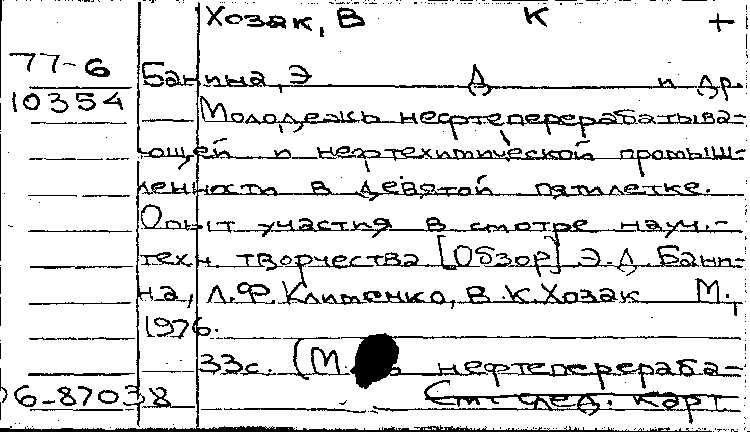 Хозак, В К +
77-6
Банина, Э Д и др.
10354
Молодежь нефтеперерабатываю-
ющей и нефтехимической промыш-
ленности в девятой пятилетке.
Опыт участия в смотре науч.-
техн. творчества [Обзор] Э.Д. Бани-
на, Л.Ф. Клименко, В.К. Хозак М.,
1976.
33с. (М. нефтеперераба-
06-87038 См. след. карт